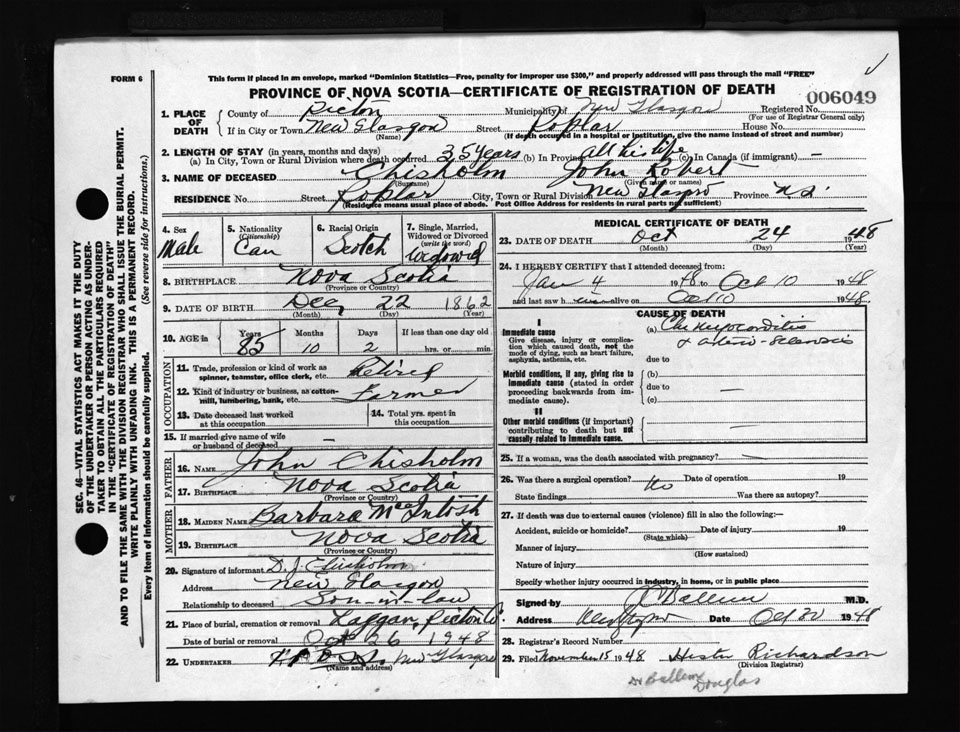 FORM 6
This form if placed in an envelope, marked "Dominion Statistics—Free, penalty for improper use $300," and properly addressed will pass through the mail "FREE"
PROVINCE OF NOVA SCOTIA—CERTIFICATE OF REGISTRATION OF DEATH
006049
1. PLACE OF DEATH
County of Pictou Municipality of New Glasgow Registered No.
(For use of Registrar General only)
If in City or Town New Glasgow Street Poplar House No.
(Name) (If death occurred in a hospital or institution, give the name instead of street and number)
2. LENGTH OF STAY (in years, months and days)
(a) In City, Town or Rural Division where death occurred 35 years (b) In Province all his life (c) In Canada (if immigrant) —
3. NAME OF DECEASED Chisholm John Robert
(Surname) (Given name or names)
RESIDENCE No. Street Poplar City, Town or Rural Division New Glasgow Province N.S.
(Residence means usual place of abode. Post Office Address for residents in rural parts not sufficient)
4. Sex Male
5. Nationality (Citizenship) Can
6. Racial Origin Scotch
7. Single, Married, Widowed or Divorced (write the word) Widowed
8. BIRTHPLACE Nova Scotia
(Province or Country)
9. DATE OF BIRTH Dec 22 1862
(Month) (Day) (Year)
10. AGE in Years Months Days If less than one day old
85 10 2 hrs. or min.
OCCUPATION
11. Trade, profession or kind of work as spinner, teamster, office clerk, etc. Retired
12. Kind of industry or business, as cotton-mill, lumbering, bank, etc. Farmer
13. Date deceased last worked at this occupation
14. Total yrs. spent in this occupation
15. If married give name of wife or husband of deceased —
FATHER
16. NAME John Chisholm
17. BIRTHPLACE Nova Scotia
(Province or Country)
MOTHER
18. MAIDEN NAME Barbara McIntosh
19. BIRTHPLACE Nova Scotia
(Province or Country)
20. Signature of informant D. J. Chisholm
Address New Glasgow
Relationship to deceased Son-in-law
21. Place of burial, cremation or removal Laggan, Pictou Co
Date of burial or removal Oct 26 1948
22. UNDERTAKER New Glasgow
(Name and address)
MEDICAL CERTIFICATE OF DEATH
23. DATE OF DEATH Oct 24 1948
(Month) (Day) (Year)
24. I HEREBY CERTIFY that I attended deceased from:
Jan 4 1948 to Oct 10 1948
and last saw him alive on Oct 10 1948.
CAUSE OF DEATH
I
Immediate cause
Give disease, injury or complication which caused death, not the mode of dying, such as heart failure, asphyxia, asthenia, etc.
(a) Chr Myocarditis
& arterio-sclerosis
due to
Morbid conditions, if any, giving rise to immediate cause (stated in order proceeding backwards from immediate cause).
(b)
due to —
(c)
II
Other morbid conditions (if important) contributing to death but not causally related to immediate cause.
—
25. If a woman, was the death associated with pregnancy? —
26. Was there a surgical operation? No Date of operation 19
State findings Was there an autopsy?
27. If death was due to external causes (violence) fill in also the following:—
Accident, suicide or homicide? Date of injury 19
(State which)
Manner of injury
(How sustained)
Nature of injury
Specify whether injury occurred in industry, in home, or in public place
Signed by M.D.
Address New Glasgow Date Oct 1948
28. Registrar's Record Number
29. Filed November 15 1948 Hester Richardson
(Division Registrar)
Dr Ballem
Douglas
SEC. 46—VITAL STATISTICS ACT MAKES IT THE DUTY
OF THE UNDERTAKER OR PERSON ACTING AS UNDER-
TAKER TO OBTAIN ALL THE PARTICULARS REQUIRED
IN THE "CERTIFICATE OF REGISTRATION OF DEATH"
AND TO FILE THE SAME WITH THE DIVISION REGISTRAR WHO SHALL ISSUE THE BURIAL PERMIT.
WRITE PLAINLY WITH UNFADING INK. THIS IS A PERMANENT RECORD.
Every item of information should be carefully supplied. (See reverse side for instructions.)